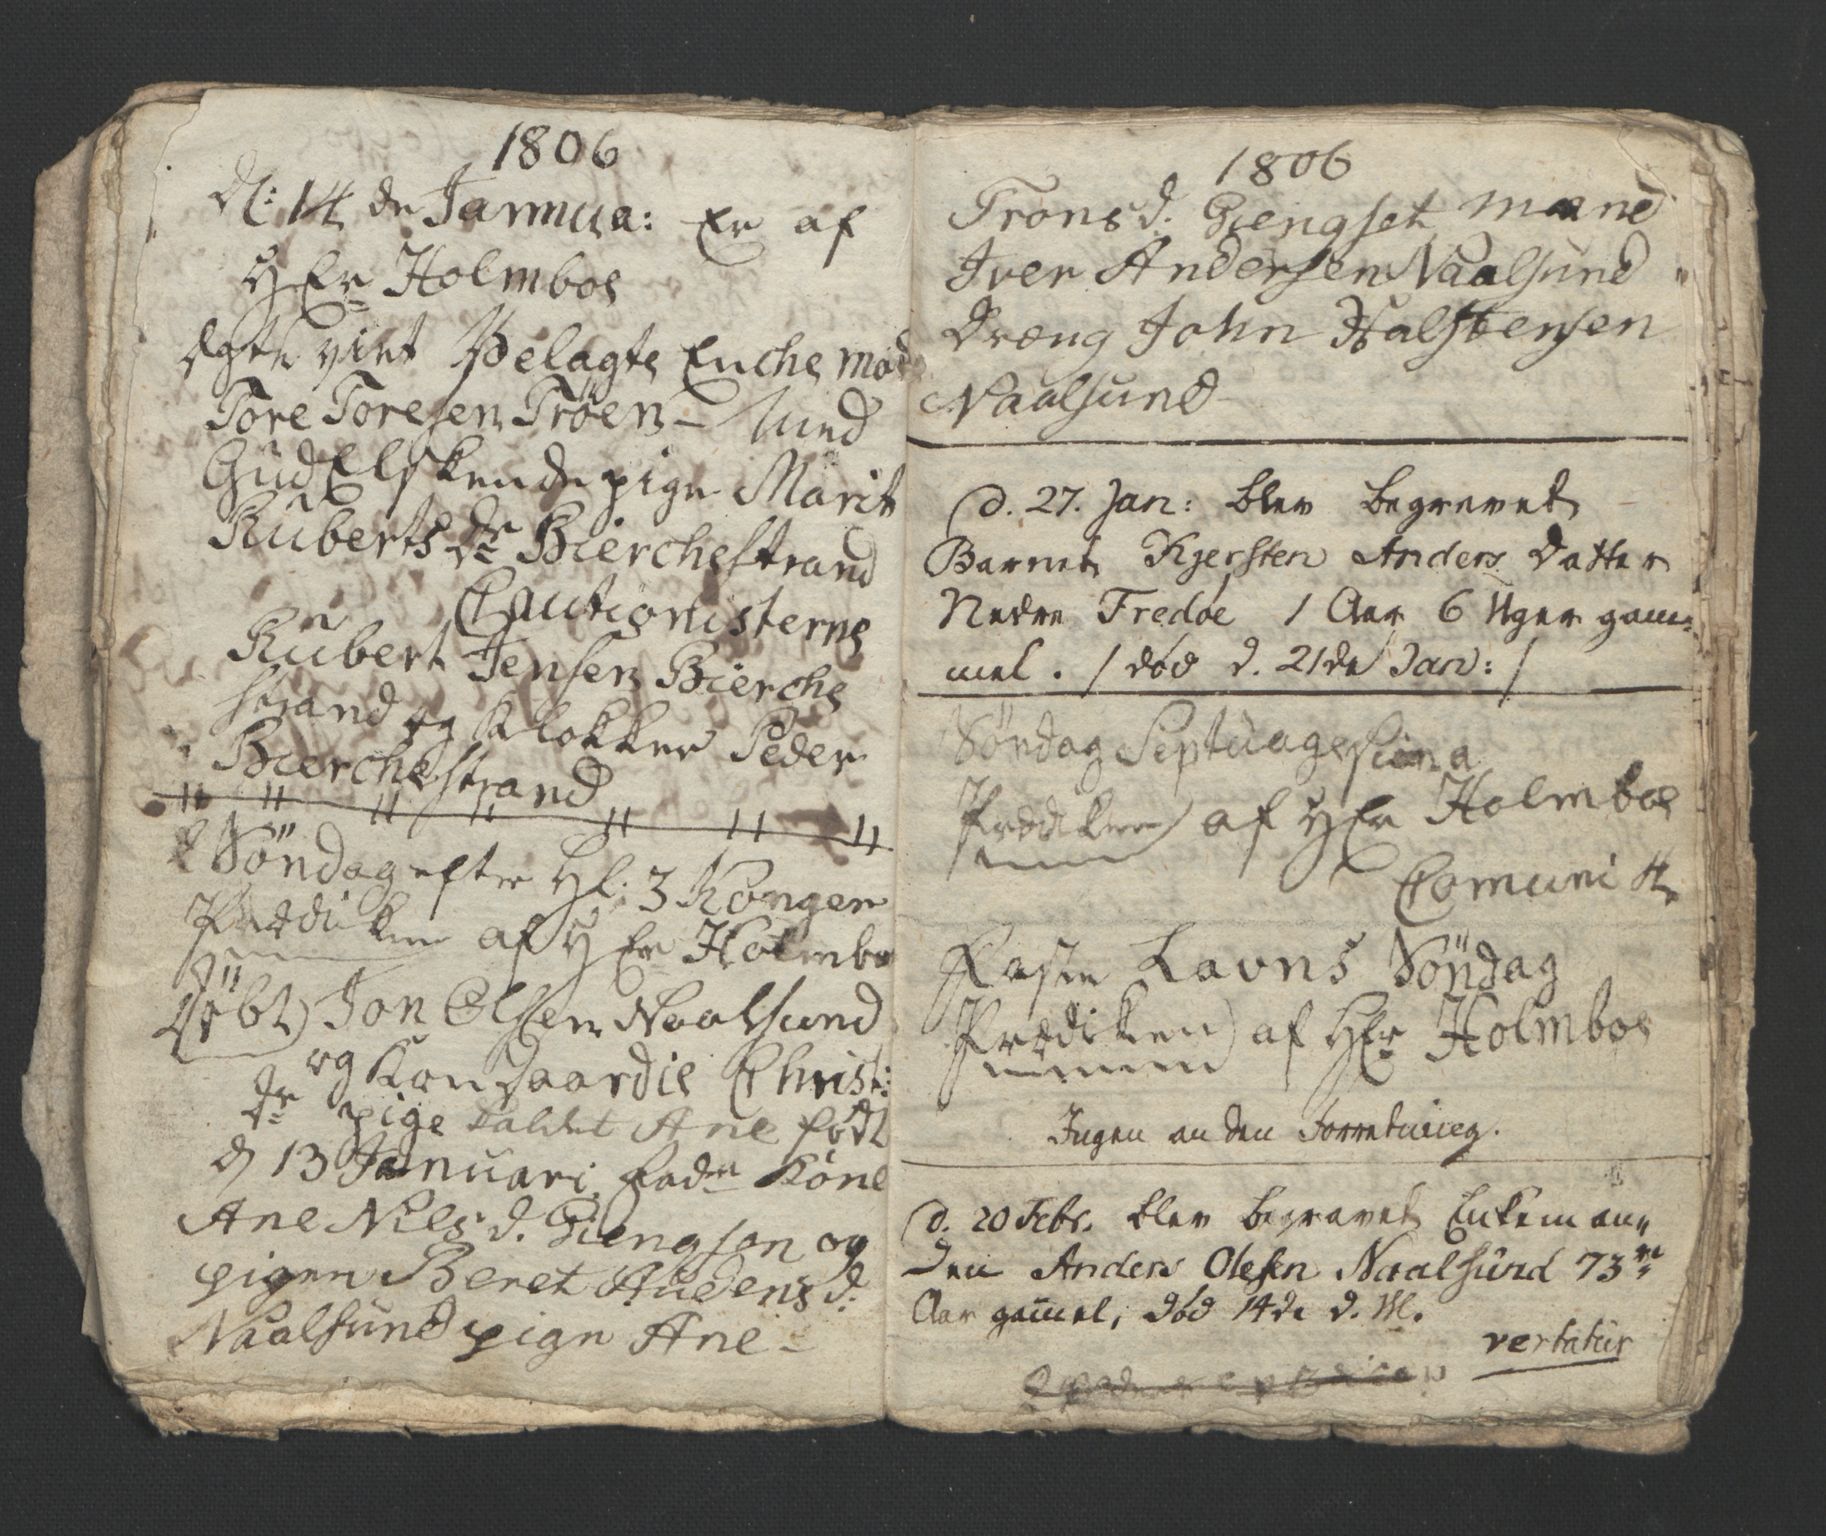 1806
D: 14 de Januua: Er af
HEr Holmboe
Egte viet Velagte Enche mand
Tore Toresen Trøen – Med
Gud Elskende pige Marit
Kuberts dr Bierchestrand
Cautionisterne
Kubert Jensen Bierche
strand og Klokker Peder
Bierchestrand
Söndag efter Hl: 3 Konger
Prædiken af HEr Holmbo
Döbt Jon Olsen Naalsund
og Kongaardie Christ:
dr pige kaldet Ane født
d 13 Januari. Fadr Kone
Ane Niels d. Giengson og
pigen Beret Audens d:
Naalsund pige Ane –
1806
Trons d. Giengset mænd
Iver Andersen Naalsund
Dræng John Halstensen
Naalsund
d. 27. Jan: blev begravet
Barnet Kjersten Anders Datter
Nedre Fredøe 1 Aar 6 Uger gam-
mel. / død d. 21de Jan: /
Söndag Septuagesima
Prædiken af HEr Holmboe
Comuni
Faste Lavns Söndag
Prædiken af HEr Holmboe
Ingen anden Forretning.
d. 20 Febr. blev begravet Enkeman-
den Anders Olesen Naalsund 73
Aar gam̄el, død 14de d. M.
vertatur